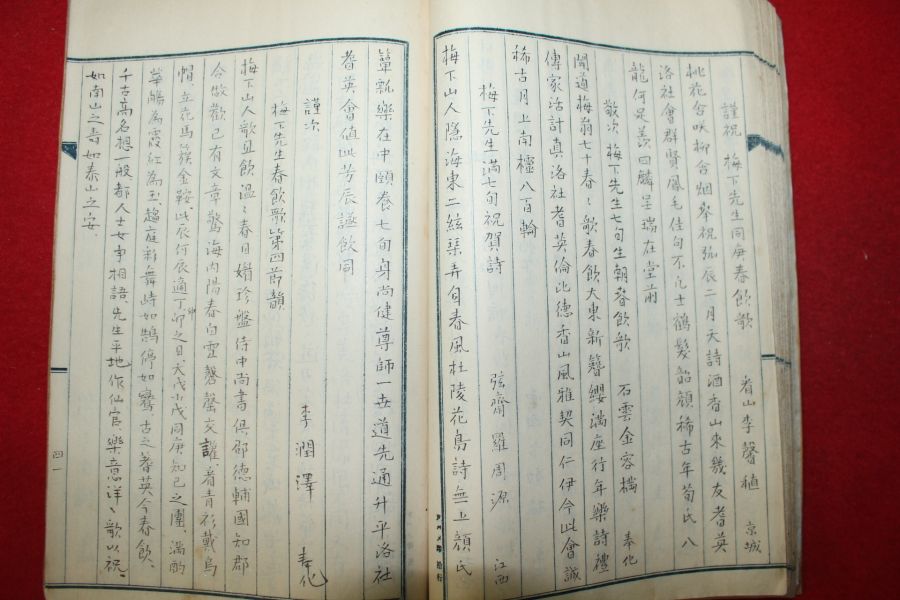 謹祝 梅下先生同庚春飲歌 看山李馨植 京城
桃花含咲柳含烟舉祝弧辰二月天詩酒香山來幾友耆英
洛社會群賢鳳毛佳句不凡士鶴髮韶顏稀古年荀氏八
龍何足羨曰麟呈瑞在堂前
敬次 梅下先生七旬生朝春飲歌 石雲金容 奉化
聞道梅翁七十春歌春飲大東新簪纓滿座行年樂詩禮
傳家活計真洛社耆英倫比德香山風雅契同仁伊今此會誠
稀古月上南樞八百輪
梅下先生滿七旬祝賀詩 弦齋 羅周源 江西
梅下山人隱海東二絃琹弄自春風杜陵花鳥詩無上顏氏
簞瓢樂在中頤養七旬身尚健尊師一世道先通升平洛社
耆英會値此芳辰讌飲同
謹次 李潤澤 奉化
梅下先生春飲歌第四茚韻
梅下山人歌且飲溫溫春日婿珍盤侍中尚書俱邵德輔國知郡
今做歡已有文章驚海內陽春白雪磬罄交讙着青衫戴烏
帽立花馬簇金鞍此辰何辰適丁卯之日大戊小戊同庚知己之團滿酌
華觴為霞紅為玉趨庭彩舞峙如鵠停如鸞古之耆英今春飲
千古高名想一般都人士女爭相語先生平地作仙官樂意洋洋歌以祝
如南山之壽如泰山之安
四一